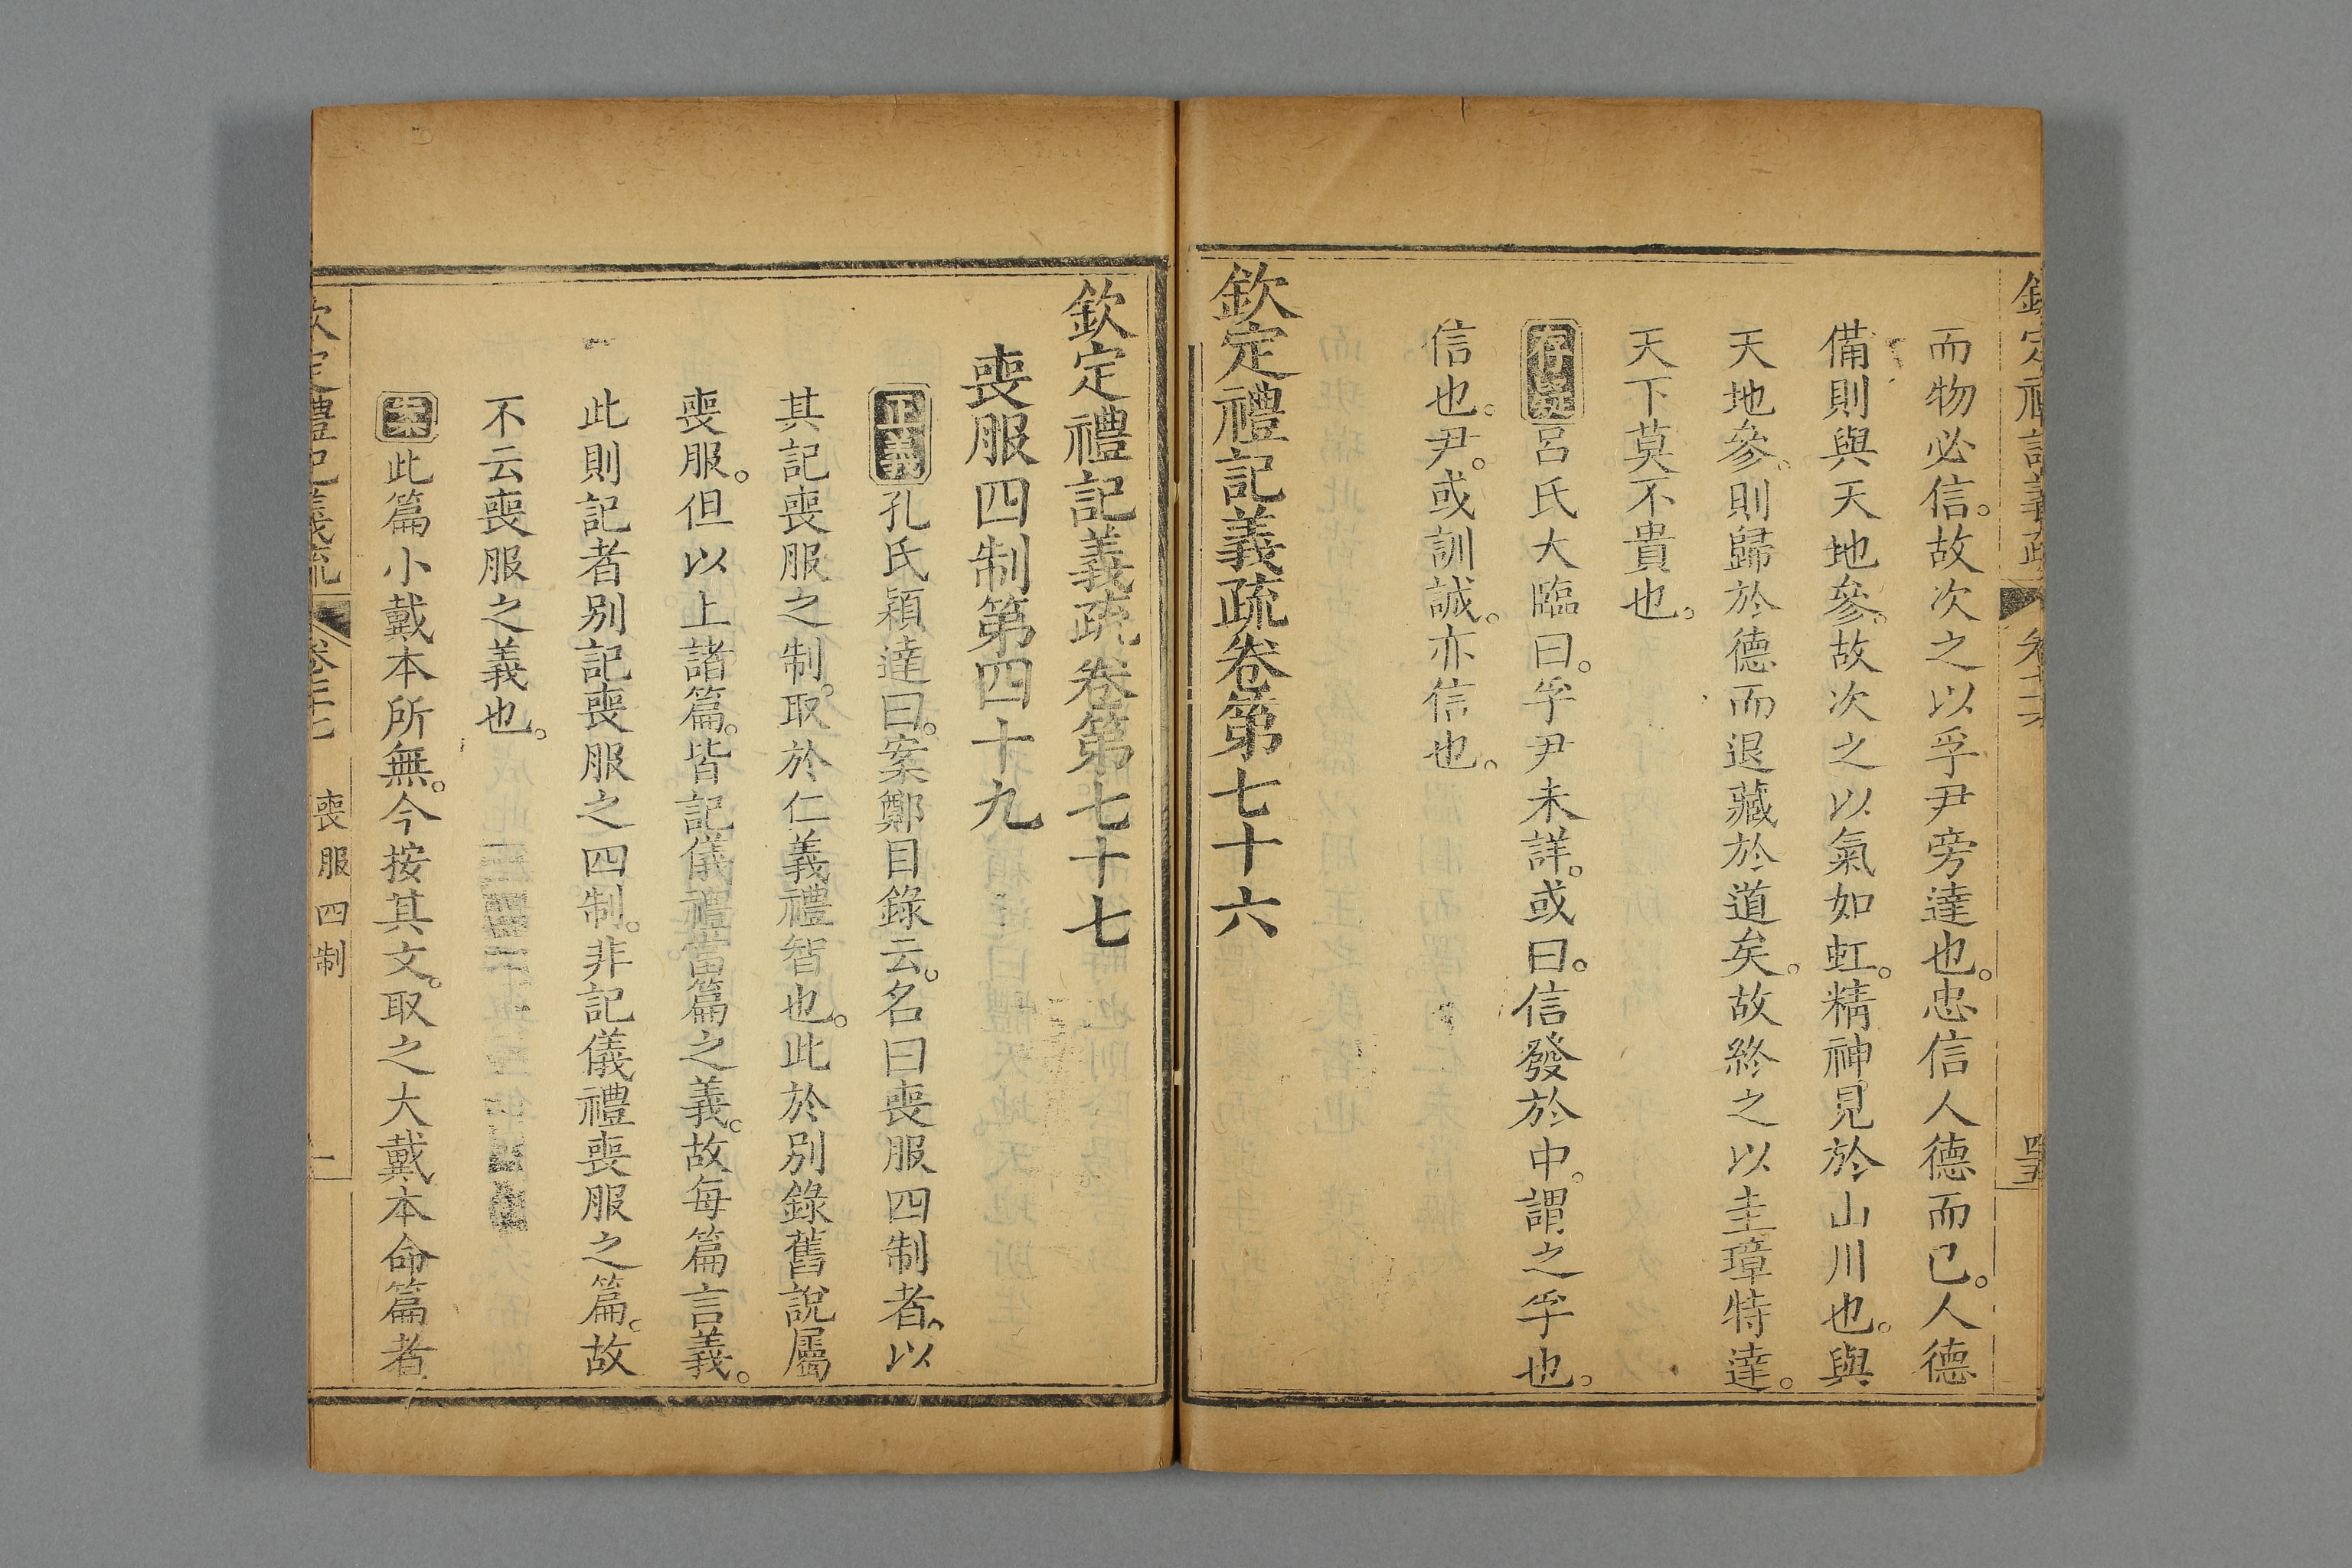 而物必信。故次之以孚尹旁達也。忠信人德而已。人德
備則與天地參。故次之以氣如虹。精神見於山川也。與
天地參。則歸於德而退藏於道矣。故終之以圭璋特達。
天下莫不貴也。
存疑呂氏大臨曰。孚尹未詳。或曰。信發於中。謂之孚
信也。尹。或訓誠。亦信也。
欽定禮記義疏卷第七十六
欽定禮記義疏卷第七十七
喪服四制第四十九
正義孔氏穎達曰。案鄭目錄云。名曰喪服四制者。以
其記喪服之制。取於仁義禮智也。此於別錄舊說屬
喪服。但以上諸篇。皆記儀禮當篇之義。故每篇言義。
此則記者別記喪服之四制。非記儀禮喪服之篇。故
不云喪服之義也。
案此篇小戴本所無。今按其文。取之大戴本命篇者
欽定禮記義疏 卷七十七 喪服四制 一